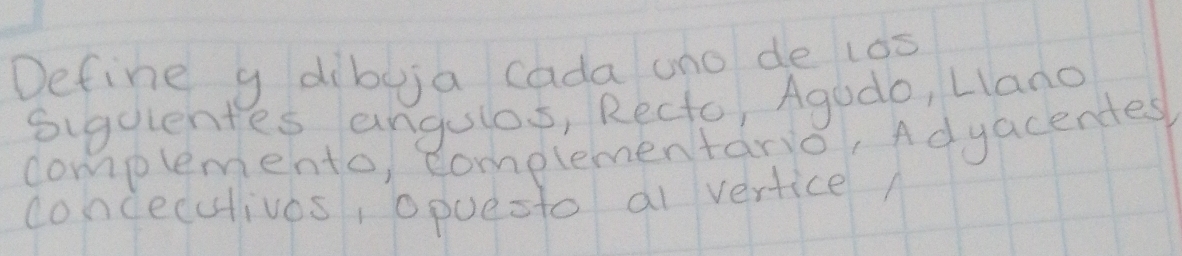 Define y dibuja cada uno de los
siguientes angulos, Recto, Agudo, Llano
complemento, complementario, Adyacentes,
concecutivos, opuesto al vertice,